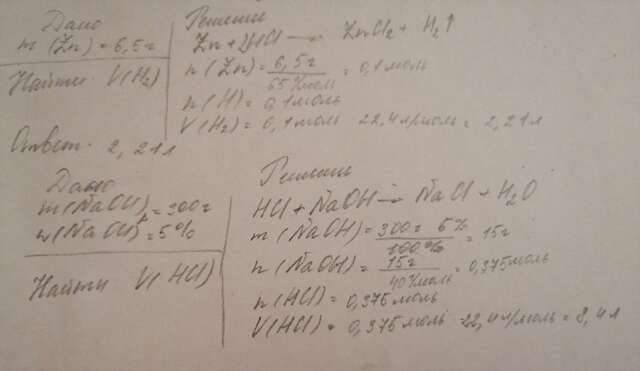 Дано
m(Zn) = 6,5г
Найти V(H2)
Ответ. 2,21л
Решение
Zn + 2HCl → ZnCl2 + H2↑
n(Zn) = 6,5г / 65г/моль = 0,1моль
n(H) = 0,1моль
V(H2) = 0,1моль 22,4л/моль = 2,21л
Дано
m(NaOH) = 300г
w(NaOH) = 5%
Найти V(HCl)
Решение
HCl + NaOH → NaCl + H2O
m(NaOH) = 300г 5% / 100% = 15г
n(NaOH) = 15г / 40г/моль = 0,375моль
n(HCl) = 0,375моль
V(HCl) = 0,375моль 22,4л/моль = 8,4л